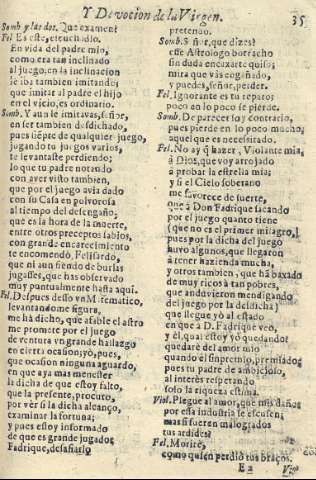 Y Devocion de la Virgen. 35
Somb. y las dos. Que examen?
Fel. Es este, escuchadlo.
En vida del padre mio,
como era tan inclinado
al juego, en la inclinacion
le iba tambien imitando;
que imitar al padre el hijo
en el vicio, es ordinario.
Somb. Y aun le imitavas, señor,
en ser tambien desdichado,
pues siẽpre de qualquier juego,
jugando tu juegos varios,
te levantaste perdiendo;
lo que tu padre notando
con aver visto tambien,
que por el juego avia dado
con su Casa en polvorosa
al tiempo del desengaño;
que es la hora de la muerte,
entre otros preceptos sabios,
con grande encarecimiento
te encomendò, Felisardo,
que ni aun siendo de burlas
jugasses, que has observado
muy puntualmente hasta aqui.
Fel. Despues desso vn Matematico,
levantandome figura,
me ha dicho, que afable el astro
me promete por el juego
de ventura vn grande hallazgo
en cierta ocasion; yo, pues,
que ocasion ninguna aguardo,
en que aya mas menester
la dicha de que estoy falto,
que la presente, procuro,
por vèr si la dicha alcanço,
examinar la fortuna;
y pues estoy informado
de que es grande jugador
Fadrique, desafiarlo
pretendo.
Somb. Señor, que dizes?
esse Astrologo borracho
sin duda encaxarte quiso;
mira que vàs engañado,
y puedes, señor, perder.
Fel. Ignorante es tu reparo;
poco en lo poco se pierde.
Somb. De parecer soy contrario,
pues pierde en lo poco mucho
aquel que es necessitado.
Fel. No ay q̃ hazer, Violante mia,
à Dios, que voy arrojado
à probar la estrella mia;
y si el Cielo soberano
me favorece de suerte,
que à Don Fadrique sacando
por el juego quanto tiene
(que no es el primer milagro,
pues por la dicha del juego
huvo algunos, que llegaron
à tener hazienda mucha,
y otros tambien, que hã baxado
de muy ricos à tan pobres,
que anduvieron mendigando
del juego por la desdicha)
que llegue yo al estado
en que à D. Fadrique veo,
y èl, qual estoy yo quedando;
quedarè del amor mio
quando el sin premio, premiado;
pues tu padre de ambicioso,
al interès respetando
solo la riqueza estima.
Viol. Plegue al amor, que mis daños
por essa industria se escusen;
mas si fueren malogrados
tus ardides?
Fel. Morirè,
como quien perdiò tus braços.
E 2 Vio.